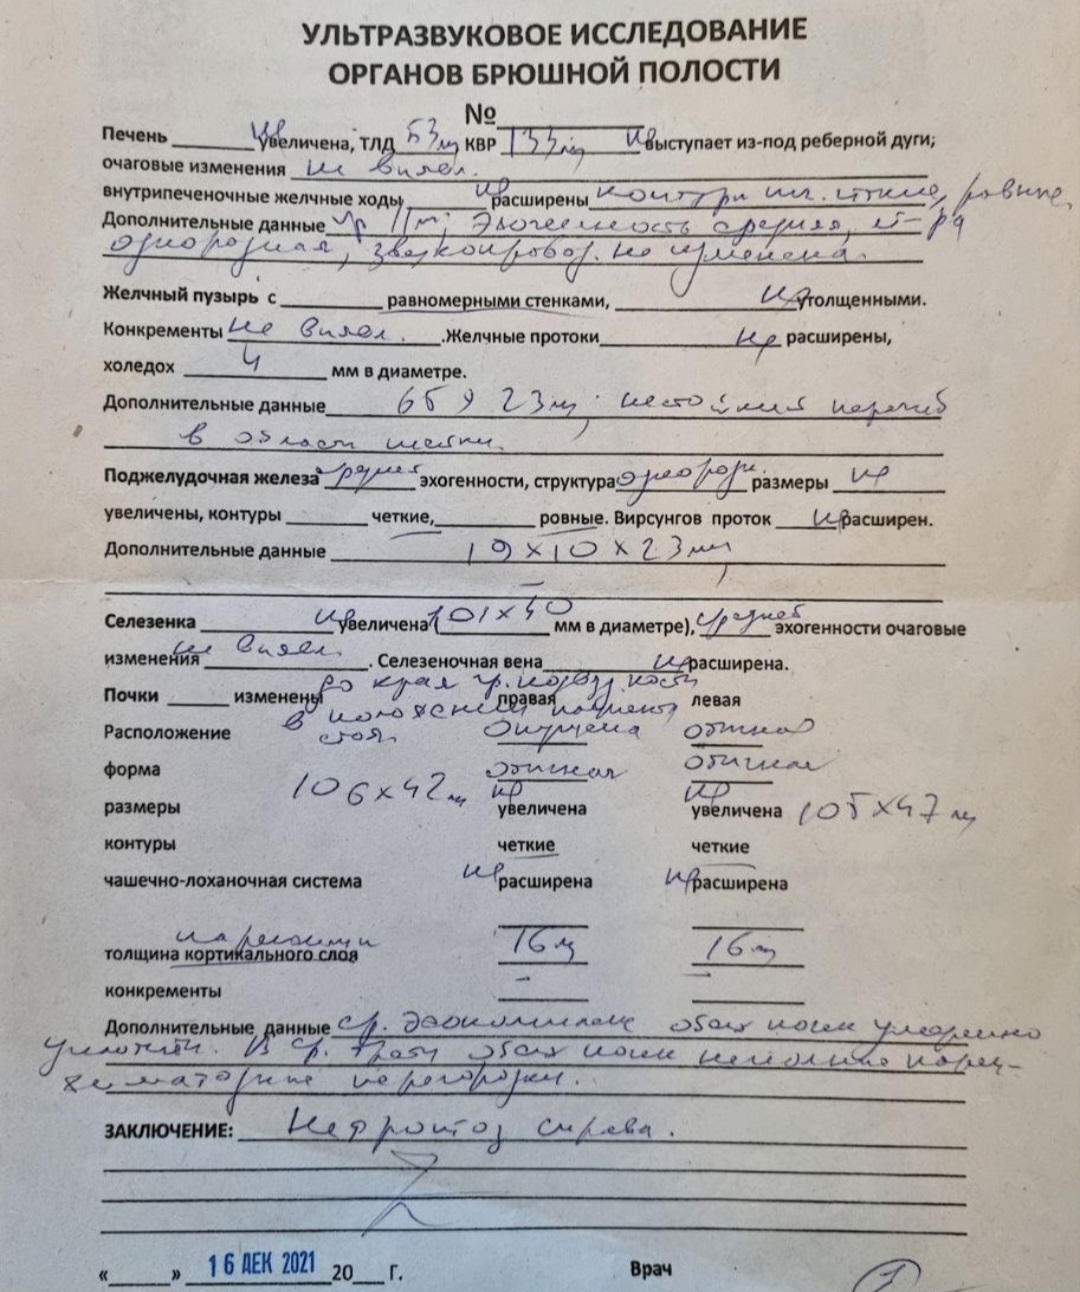 УЛЬТРАЗВУКОВОЕ ИССЛЕДОВАНИЕ
ОРГАНОВ БРЮШНОЙ ПОЛОСТИ
№
Печень не увеличена, ТЛД 53 мм КВР 133 мм не выступает из-под реберной дуги;
очаговые изменения не выявл.
внутрипеченочные желчные ходы не расширены контуры чёткие, ровные,
Дополнительные данные Эхогенность средняя, стр-ра
однородная, звукопровод. не изменена.
Желчный пузырь с равномерными стенками, не утолщенными.
Конкременты не выявл. Желчные протоки не расширены,
холедох 4 мм в диаметре.
Дополнительные данные 65 х 23 мм; нестойкий перегиб
в области шейки.
Поджелудочная железа средней эхогенности, структура однородн. размеры не
увеличены, контуры четкие, ровные. Вирсунгов проток не расширен.
Дополнительные данные 19х10х23 мм
Селезенка не увеличена (101х40 мм в диаметре), средней эхогенности очаговые
изменения не выявл. Селезеночная вена не расширена.
до края гр. подвзд. кости
Почки изменены правая левая
в положении пациента
Расположение стоя опущена обычное
форма обычная обычная
размеры 106х42 мм не увеличена не увеличена 105х47 мм
контуры четкие четкие
чашечно-лоханочная система не расширена не расширена
паренхимы
толщина кортикального слоя 16 мм 16 мм
конкременты –
Дополнительные данные ср. эхокомплекс обеих почек умеренно
уплотн. В ср. трети обеих почек неполные парен-
химаторные перегородки.
ЗАКЛЮЧЕНИЕ: Нефроптоз справа.
« » 16 ДЕК 2021 20 г. Врач